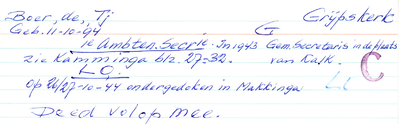 Boer, de, Tj G Grijpskerk
Geb. 11-10-94
1e Ambten. Secrie. In 1943 Gem. Secretaris in de plaats van Kalk.
zie Kamminga blz. 27-32.
LO.
Op 26/27-10-44 ondergedoken in Makkinga.
C
Deed volop mee.